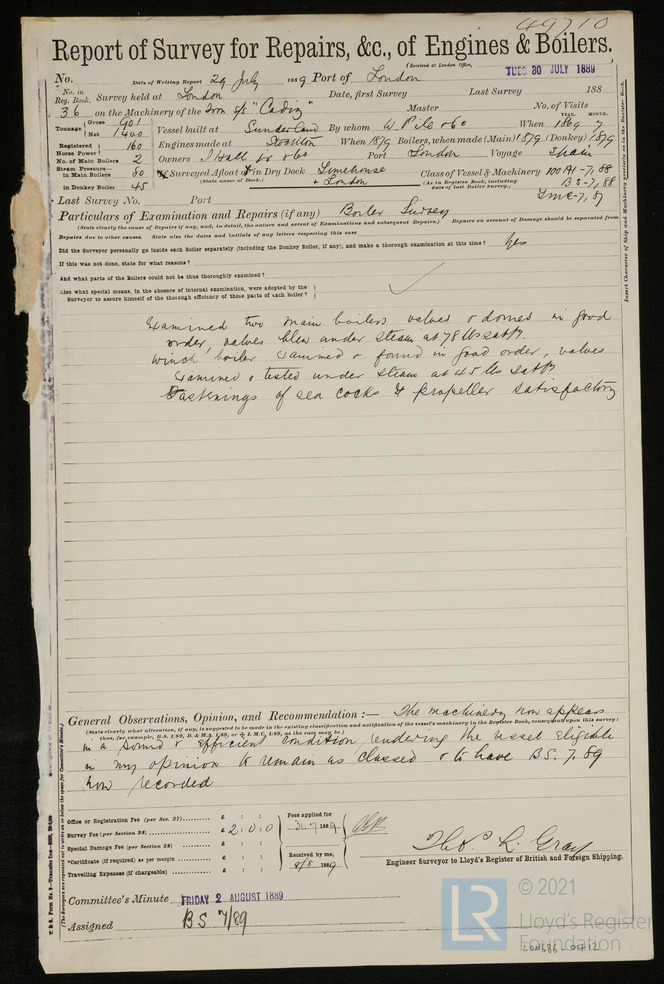 49710
Report of Survey for Repairs, &c., of Engines & Boilers.
(Received at London Office, TUES 30 JULY 1889
No. Date of Writing Report 29 July 1889 Port of London
No. in Reg. Book. Survey held at London Date, first Survey Last Survey 188
36 on the Machinery of the Iron s/s "Cadiz" Master No. of Visits
Tonnage Gross 901 Net 1400 Vessel built at Sunderland By whom W. Pile & Co When YEAR. 1869 MONTH. 7
Registered Horse Power 160 Engines made at Stockton When 1879 Boilers, when made (Main) 1879 (Donkey) 1879
No. of Main Boilers 2 Owners J Hall jr & Co Port London Voyage Spain
Steam Pressure— in Main Boilers 80 Surveyed Afloat & in Dry Dock Limehouse Class of Vessel & Machinery 100 A1 -7,88
in Donkey Boiler 45 (State name of Dock.) & London (As in Register Book, including date of last Boiler Survey.) BS-7,88
LMC-7,87
Last Survey No. Port
Particulars of Examination and Repairs (if any) Boiler Survey
(State clearly the cause of Repairs if any, and, in detail, the nature and extent of Examinations and subsequent Repairs.) Repairs on account of Damage should be separated from
Repairs due to other causes. State also the dates and initials of any letters respecting this case
Did the Surveyor personally go inside each Boiler separately (including the Donkey Boiler, if any), and make a thorough examination at this time? Yes
If this was not done, state for what reasons?
And what parts of the Boilers could not be thus thoroughly examined?
Also what special means, in the absence of internal examination, were adopted by the
Surveyor to assure himself of the thorough efficiency of those parts of each boiler?
Examined two main boilers valves & domes in good
order, valves blew under steam at 78 lbs
winch boiler examined & found in good order, valves
examined & tested under steam at 45 lbs
Fastenings of sea cocks & propeller satisfactory
General Observations, Opinion, and Recommendation :— The machinery now appears
(State clearly what alteration, if any, is suggested to be made in the existing classification and notification of the vessel's machinery in the Register Book, consequent upon this survey;
in a sound & efficient condition rendering the vessel eligible
in my opinion to remain as classed & to have B.S. 7.89
now recorded
Office or Registration Fee (per Sec. 27) £ : : Fees applied for
Survey Fee (per Section 28) £ 2 : 0 : 0 31.7 1889
Special Damage Fee (per Section 28) £ : :
*Certificate (if required) as per margin £ : : Received by me,
Travelling Expenses (if chargeable) £ : : 1889
Thos L. Gray
Engineer Surveyor to Lloyd's Register of British and Foreign Shipping.
Committee's Minute FRIDAY 2 AUGUST 1889
Assigned BS 7/89
LR
© 2021
Lloyd's Register
Foundation
LON686-0412